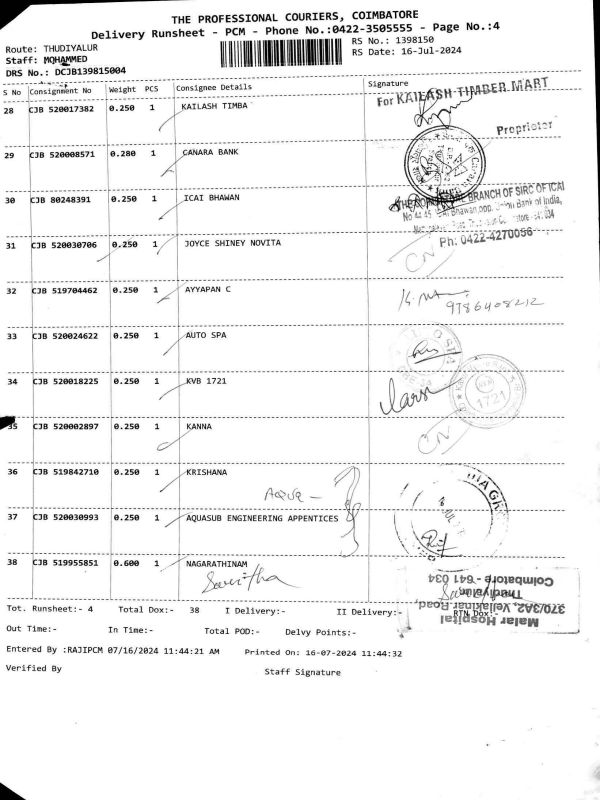 THE PROFESSIONAL COURIERS, COIMBATORE
Delivery Runsheet - PCM - Phone No.:0422-3505555 - Page No.:4
Route: THUDIYALUR
RS No.: 1398150
Staff: MOHAMMED
RS Date: 16-Jul-2024
DRS No.: DCJB139815004
S No Consignment No Weight PCS Consignee Details Signature
28 CJB 520017382 0.250 1 KAILASH TIMBA
For KAILASH TIMBER MART
Proprietor
29 CJB 520008571 0.280 1 CANARA BANK
30 CJB 80248391 0.250 1 ICAI BHAWAN
BRANCH OF SIRC OF ICAI
Bank of India,
Ph: 0422-4270056
31 CJB 520030706 0.250 1 JOYCE SHINEY NOVITA
CN
32 CJB 519704462 0.250 1 AYYAPAN C
9786408212
33 CJB 520024622 0.250 1 AUTO SPA
34 CJB 520018225 0.250 1 KVB 1721
1721
35 CJB 520002897 0.250 1 KANNA
CN
36 CJB 519842710 0.250 1 KRISHANA
AQUA -
37 CJB 520030993 0.250 1 AQUASUB ENGINEERING APPENTICES
38 CJB 519955851 0.600 1 NAGARATHINAM
Savitha
Malar Hospital
370/3A2, Vellakinar Road,
Thudiyalur
Coimbatore - 641 034
Tot. Runsheet:- 4 Total Dox:- 38 I Delivery:- II Delivery:- RTN Dox:-
Out Time:- In Time:- Total POD:- Delvy Points:-
Entered By :RAJIPCM 07/16/2024 11:44:21 AM Printed On: 16-07-2024 11:44:32
Verified By Staff Signature